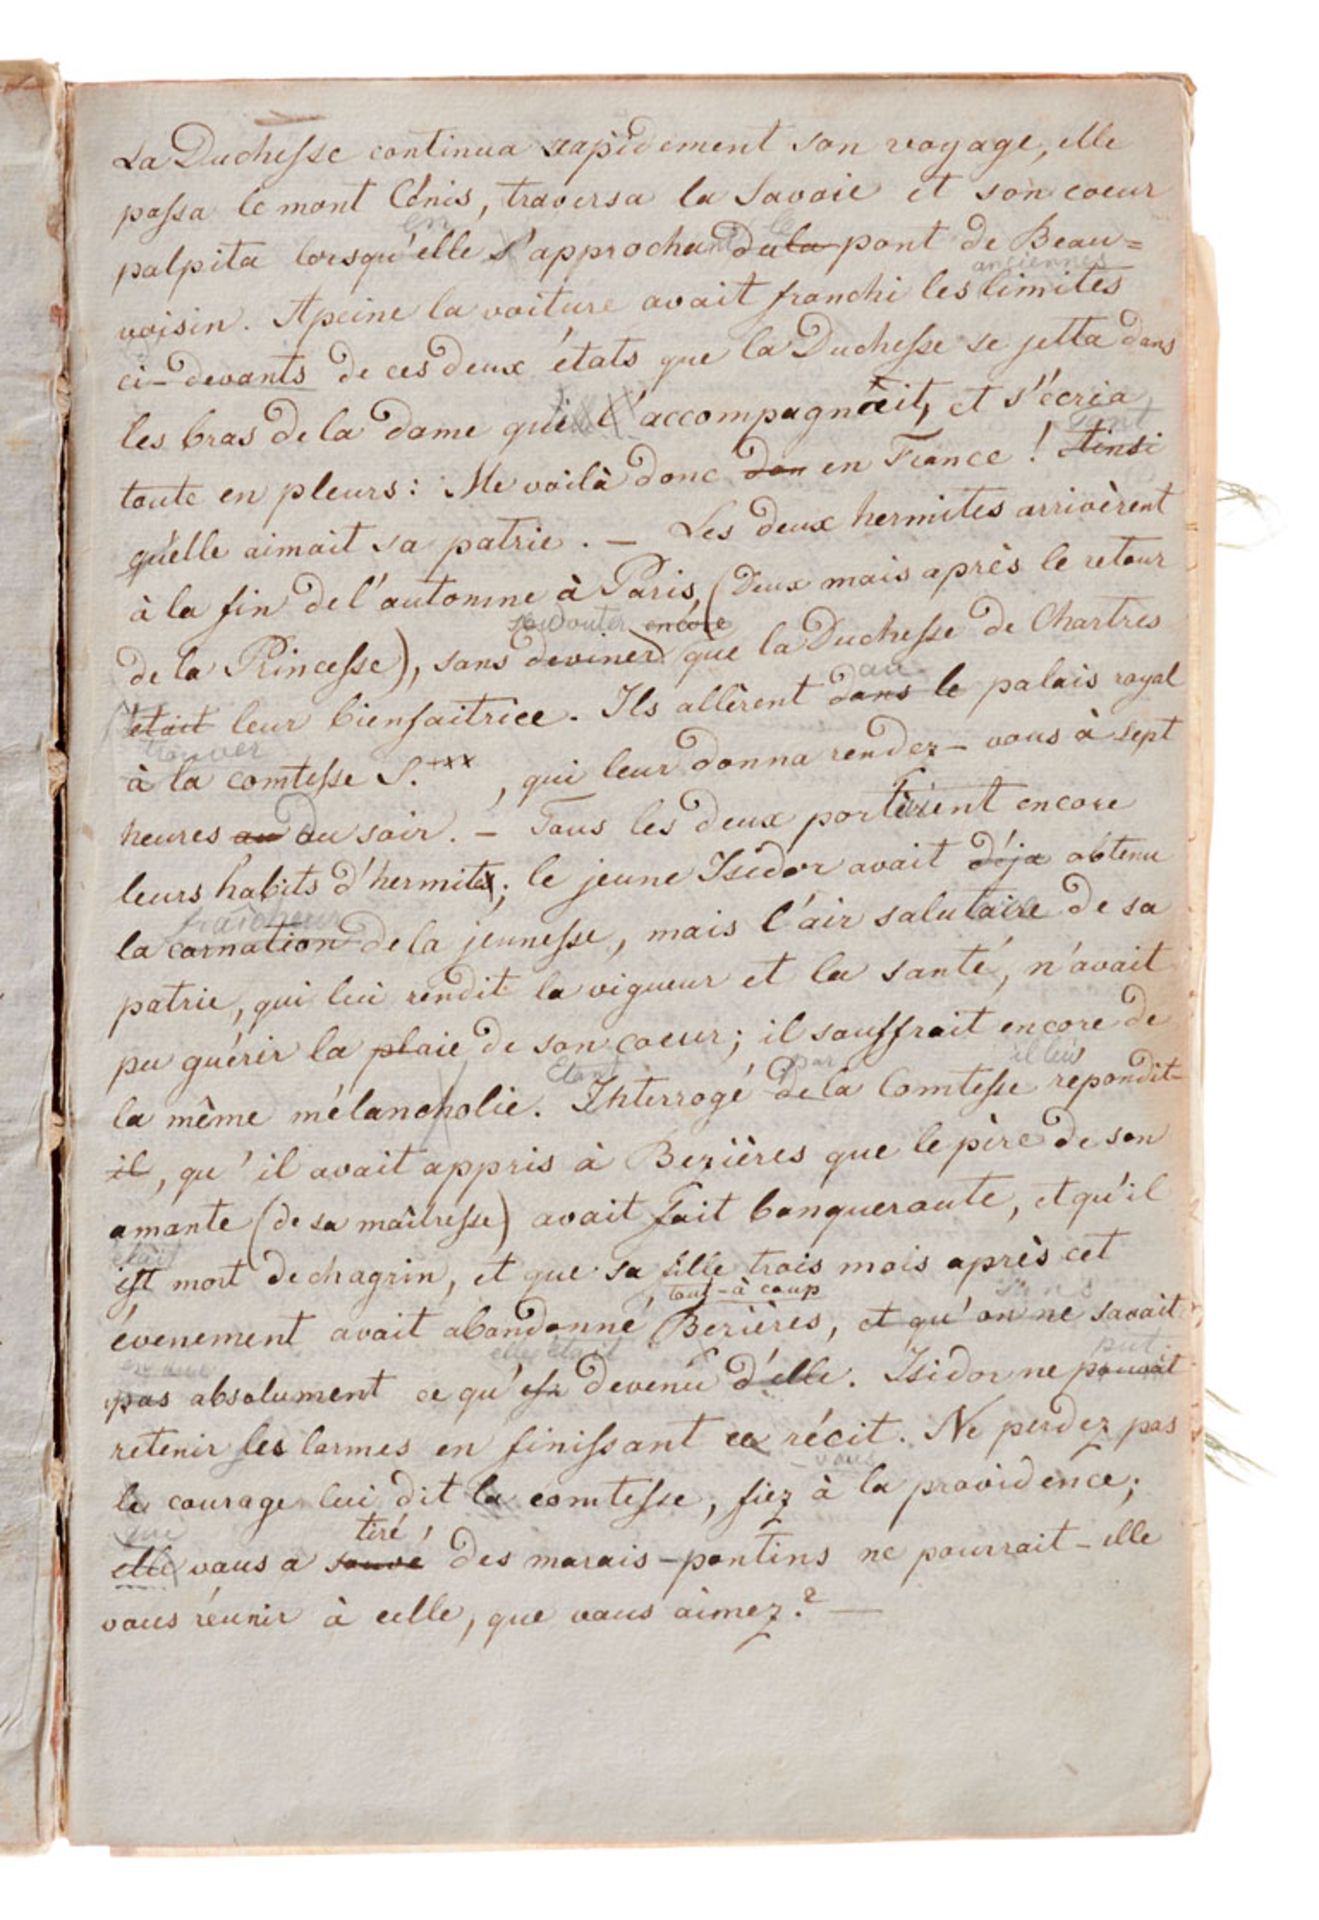 La Duchesse continua rapidement son voyage, elle
passa le mont Cénis, traversa la Savoie et son coeur
en le
palpita lorsqu'elle s'approcha de la pont de Beau=
anciennes
voisin. Apeine la voiture avait franchi les limites
ci-devants de ces deux états que la Duchesse se jetta dans
les bras de la dame qui l'accompagnait, et s'écria
tant
toute en pleurs: Me voilà donc dan en France! Ainsi
qu'elle aimait sa patrie. — Les deux hermites arrivèrent
à la fin de l'automne à Paris, (Deux mais après le retour
se douter encore
de la Princesse), sans deviner que la Duchesse de Chartres
au
était leur bienfaitrice. Ils allèrent dans le palais royal
trouver
à la comtesse S.+xx, qui leur donna rendez-vous à sept
heures au du soir. — Tous les deux portèrent encore
leurs habits d'hermites; le jeune Isidor avait déja obtenu
fraîcheur
la carnation de la jeunesse, mais l'air salutaire de sa
patrie, qui lui rendit la vigueur et la santé, n'avait
pu guérir la plaie de son coeur; il souffrait encore de
Etant par il leur
la même mélancholie. Interrogé de la Comtesse repondit-
il, qu'il avait appris à Bezières que le père de son
amante (de sa maîtresse) avait fait banqueroute, et qu'il
était
est mort de chagrin, et que sa fille trois mois après cet
tout-à coup sans
évenement avait abandonné Bezières, et qu'on ne savait
elle était put
pas absolument ce qu'est devenu d'elle. Isidor ne pouvait
retenir les larmes en finissant ce récit. Ne perdez pas
vous
le courage lui dit la comtesse, fiez à la providence;
tiré
elle vous a sauvé des marais-pontins ne pourrait-elle
vous réunir à celle, que vous aimez? —